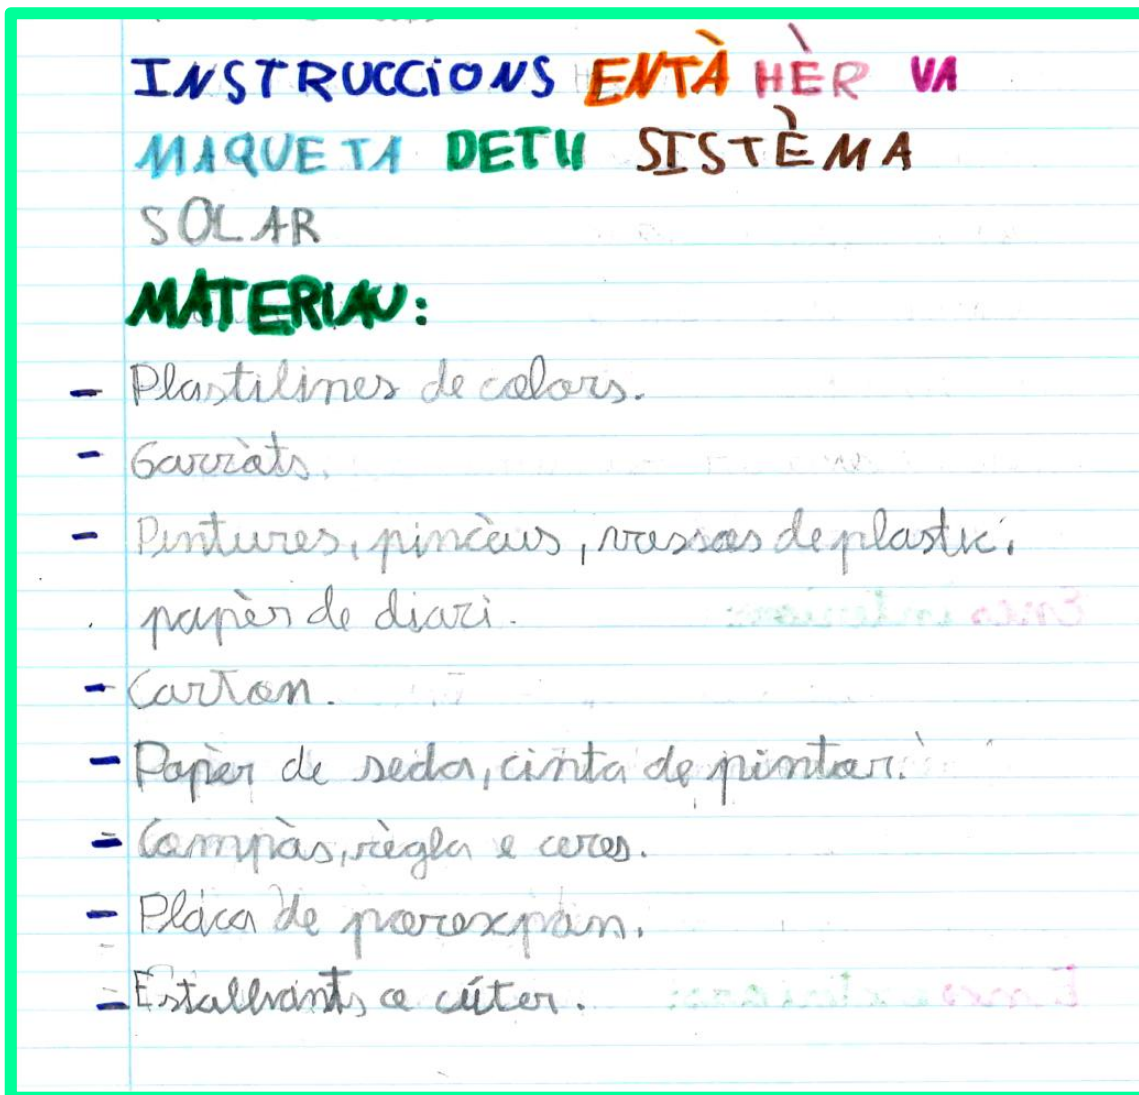 INSTRUCCIONS ENTÀ HÈR VA
MAQUETA DETH SISTÈMA
SOLAR
MATERIAU:
- Plastilines de colors.
- Garràts.
- Pintures, pincèus, vassos de plastic,
papèr de diari.
- Carton.
- Papèr de seda, cinta de pintar.
- Compàs, règla e ceres.
- Placa de porexpan.
- Estalhants o cúter.